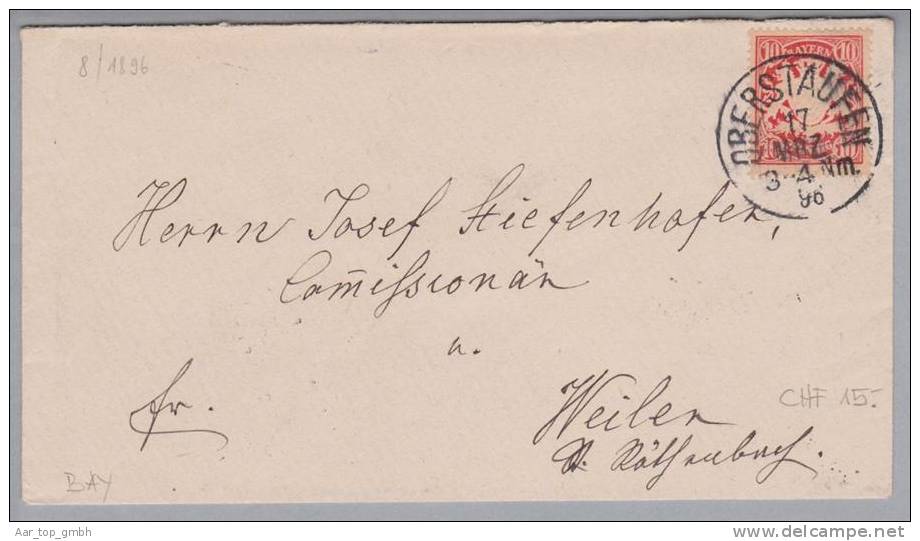 8/1896
10 BAYERN 10
OBERSTAUFEN
17
MRZ
3-4 Nm.
96
Herrn Josef Stiefenhofer,
Com̅issionär
u.
fr.
Weiler
CHF 15.-
St. Röthenbach.
BAY
Aar_top_gmbh
www.delcampe.net